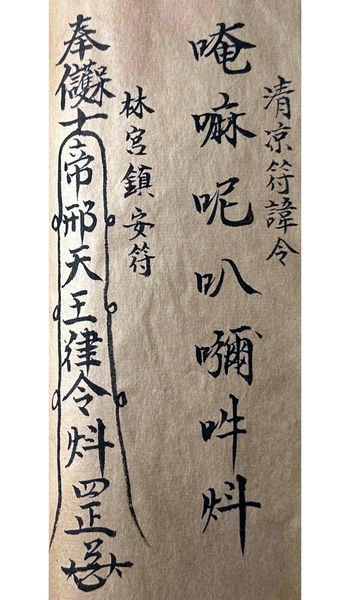 清凉符諱令
唵嘛呢叭嚩吽炓
林宫鎮安符
奉
士帝邢天王律令炓罡